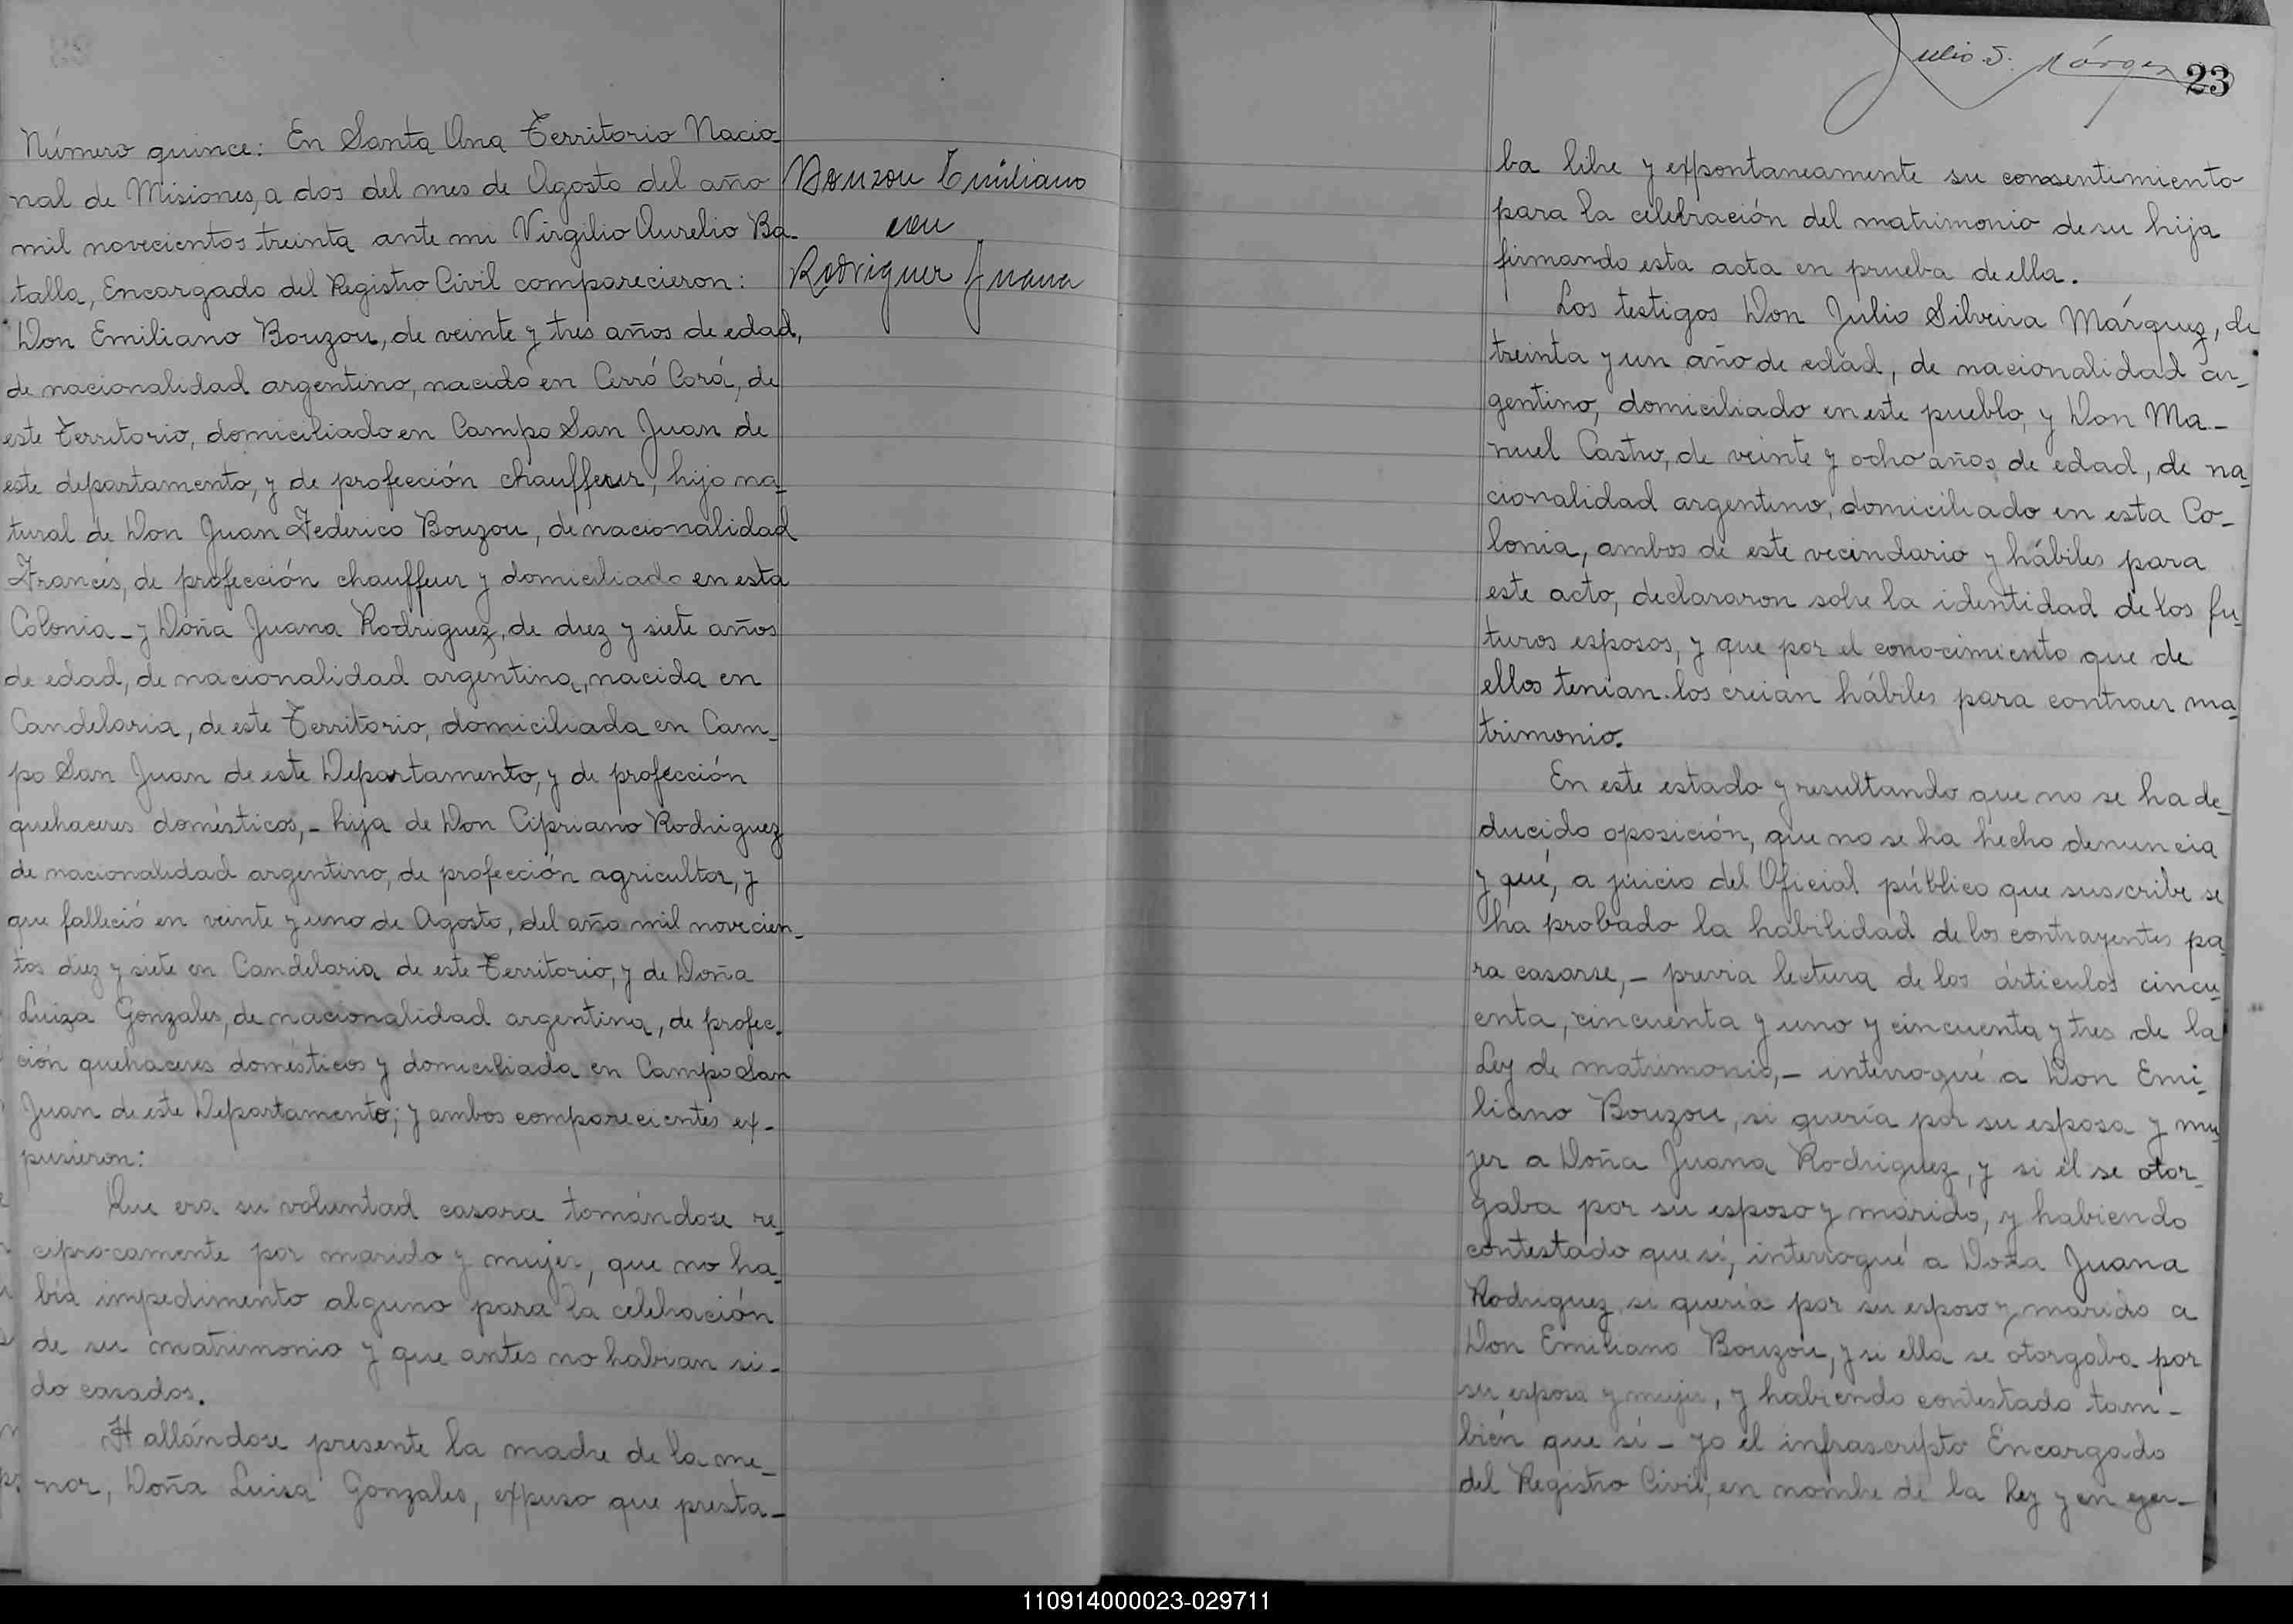 Número quince: En Santa Ana Territorio Nacio-
nal de Misiones, a dos del mes de Agosto del año
mil novecientos treinta ante mi Virgilio Aurelio Ba-
talla, Encargado del Registro Civil comparecieron:
Don Emiliano Bouzou, de veinte y tres años de edad,
de nacionalidad argentino, nacido en Cerró Corá, de
este Territorio, domiciliado en Campo San Juan de
este departamento, y de profección chauffeur, hijo na-
tural de Don Juan Federico Bouzou, de nacionalidad
Francés, de profección chauffeur y domiciliado en esta
Colonia - y Doña Juana Rodriguez, de diez y siete años
de edad, de nacionalidad argentina, nacida en
Candelaria, de este Territorio, domiciliada en Cam-
po San Juan de este Departamento, y de profección
quehaceres domésticos, - hija de Don Cipriano Rodriguez
de nacionalidad argentino, de profección agricultor, y
que falleció en veinte y uno de Agosto, del año mil novecien-
tos diez y siete en Candelaria de este Territorio, y de Doña
Luiza Gonzales, de nacionalidad argentina, de profec-
ción quehaceres domésticos y domiciliada en Campo San
Juan de este Departamento; y ambos comparecientes ex-
pusieron:
Que era su voluntad casarce tomándose re-
ciprocamente por marido y mujer, que no ha-
bia impedimento alguno para la celebración
de su matrimonio y que antes no habian si-
do casados.
Hallándose presente la madre de la me-
nor, Doña Luisa Gonzales, expuso que presta-
Bouzou Emiliano
con
Rodriguez Juana
Julio S. Márquez
23
ba libre y expontaneamente su consentimiento
para la celebración del matrimonio de su hija
firmando esta acta en prueba de ella.
Los testigos Don Julio Silveira Márquez, de
treinta y un año de edad, de nacionalidad ar-
gentino, domiciliado en este pueblo, y Don Ma-
nuel Castro, de veinte y ocho años de edad, de na-
cionalidad argentino, domiciliado en esta Co-
lonia, ambos de este vecindario y hábiles para
este acto, declararon sobre la identidad de los fu-
turos esposos, y que por el conocimiento que de
ellos tenian los creian hábiles para contraer ma-
trimonio.
En este estado y resultando que no se ha de-
ducido oposición, que no se ha hecho denuncia
y qué, a juicio del Oficial público que suscribe se
ha probado la habilidad de los contrayentes pa-
ra casarse, - previa lectura de los árticulos cincu-
enta, cincuenta y uno y cincuenta y tres de la
Ley de matrimonio, - interrogué a Don Emi-
liano Bouzou, si quería por su esposa y mu-
jer a Doña Juana Rodriguez, y si él se otor-
gaba por su esposo y marido, y habiendo
contestado que sí, interrogué a Doña Juana
Rodriguez si quería por su esposo y marido a
Don Emiliano Bouzou, y si ella se otorgaba por
su esposa y mujer, y habiendo contestado tam-
bién que sí - yo el infrascripto Encargado
del Registro Civil, en nombre de la Ley y en ejer-
110914000023-029711